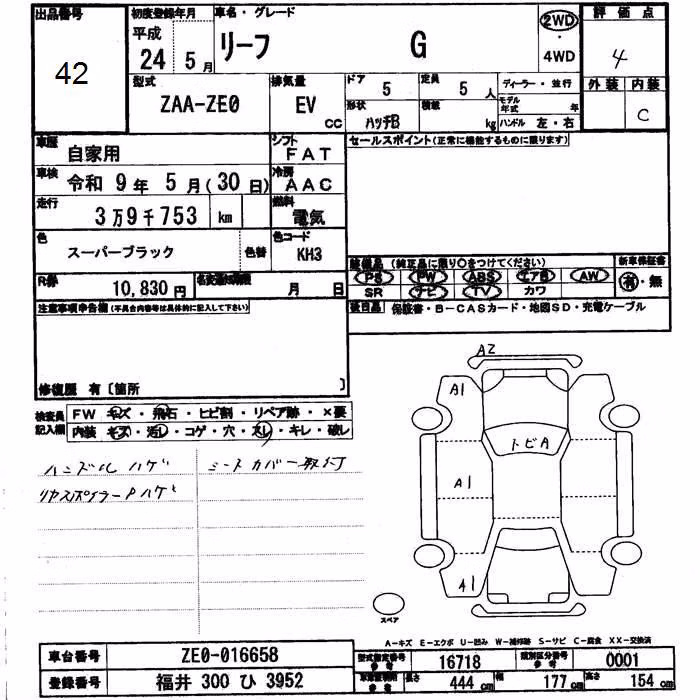 出品番号 初度登録年月 車名・グレード 2WD 評価点
42 平成 24 5月 リーフ G ・ 4WD 4
型式 排気量 ドア 定員 ディーラー・並行 外装 内装
ZAA-ZE0 EV CC 5 5人 モデル年式 年 C
形状 積載 ハンドル 左・右
ハッチB kg
車歴 自家用 シフト FAT セールスポイント(正常に機能するものに限ります)
車検 令和 9年 5月(30日) 冷房 AAC
走行 3万9千753 km 燃料 電気
色 スーパーブラック 色替 色コード KH3
装備品 (純正品に限り○をつけてください) 新車保証書
R券 10,830円 名変通知期限 月 日 PS PW ABS エアB AW 有・無
SR ナビ TV カワ
注意事項申告欄(不具合内容等は具体的に記入して下さい) 後日品 保証書・B-CASカード・地図SD・充電ケーブル
修復歴 有〔箇所 〕
検査員記入欄 FW キズ・飛石・ヒビ割・リペア跡・×要
内装 キズ・汚レ・コゲ・穴・スレ・キレ・破レ
ハンドル ハゲ シートカバー取付
リヤスポイラーPハゲ
A2
A1
トビA
A1
A1
スペア
A-キズ E-エクボ U-凹み W-補修跡 S-サビ C-腐食 XX-交換済
車台番号 ZE0-016658 型式指定番号 参考 16718 類別区分番号 参考 0001
登録番号 福井 300 ひ 3952 参考 長さ 444 cm 幅 177 cm 高さ 154 cm